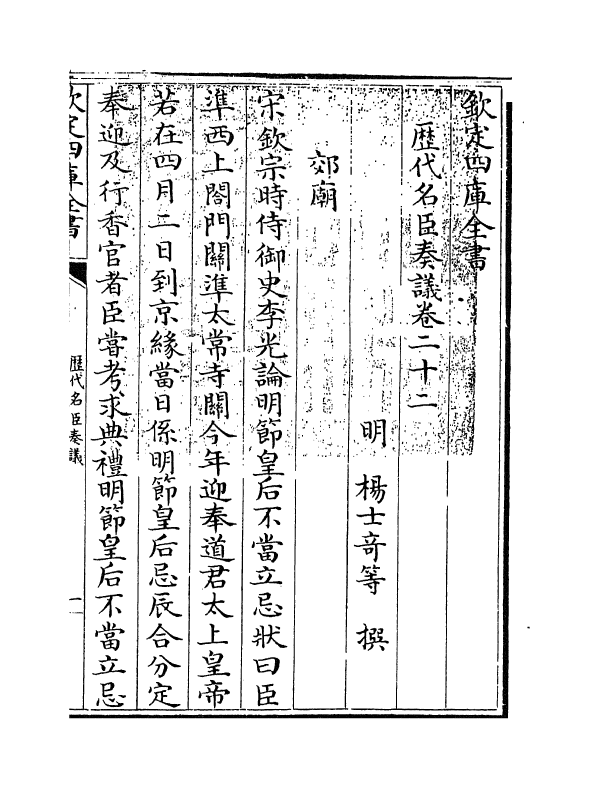 欽定四庫全書
歴代名臣奏議卷二十二
明　楊士竒等　撰
郊廟
宋欽宗時侍御史李光論明節皇后不當立忌狀曰臣
準西上閤門關準太常寺關今年迎奉道君太上皇帝
若在四月二日到京緣當日係明節皇后忌辰合分定
奉迎及行香官者臣甞考求典禮明節皇后不當立忌
欽定四庫全書
歴代名臣奏議
一